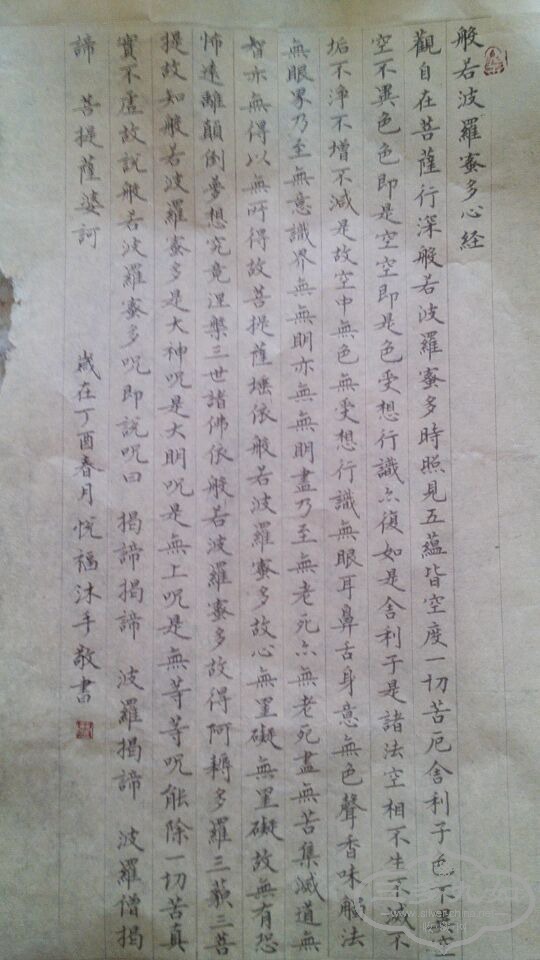 般若波羅蜜多心経
觀自在菩薩行深般若波羅蜜多時照見五蘊皆空度一切苦厄舍利子色不異空
空不異色色即是空空即是色受想行識亦復如是舍利子是諸法空相不生不滅不
垢不淨不增不減是故空中無色無受想行識無眼耳鼻舌身意無色聲香味觸法
無眼界乃至無意識界無無明亦無無明盡乃至無老死亦無老死盡無苦集滅道無
智亦無得以無所得故菩提薩埵依般若波羅蜜多故心無罣礙無罣礙故無有恐
怖遠離顛倒夢想究竟涅槃三世諸佛依般若波羅蜜多故得阿耨多羅三藐三菩
提故知般若波羅蜜多是大神呪是大明呪是無上呪是無等等呪能除一切苦真
實不虛故說般若波羅蜜多呪即說呪曰 揭諦揭諦 波羅揭諦 波羅僧揭
諦 菩提薩婆訶
歲在丁酉春月悅福沐手敬書